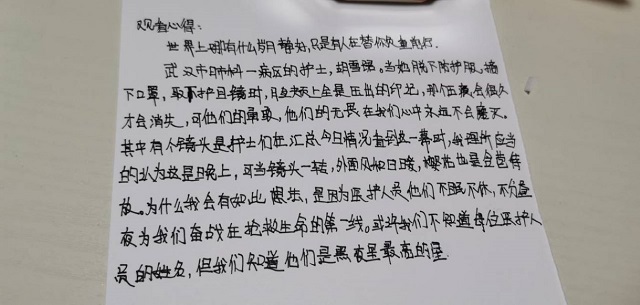 观看心得:
世界上哪有什么岁月静好,只是有人在替你负重前行.
武汉市肺科一病区的护士,胡雪强。当她脱下防护服、摘
下口罩,取下护目镜时,脸颊上全是压出的印记,那个压痕会很久
才会消失,可他们的勇敢,他们的无畏在我们心中永远不会磨灭。
其中有个镜头是护士们在汇总今日情况看到这一幕时,我理所应当
的认为这是晚上,可当镜头一转,外面风和日暖,樱花也是含苞待
放。为什么我会有如此想法,是因为医护人员他们不眠不休,不分昼
夜为我们奋战在抢救生命的第一线。或许我们不知道每位医护人
员的姓名,但我们知道他们是黑夜里最亮的星.